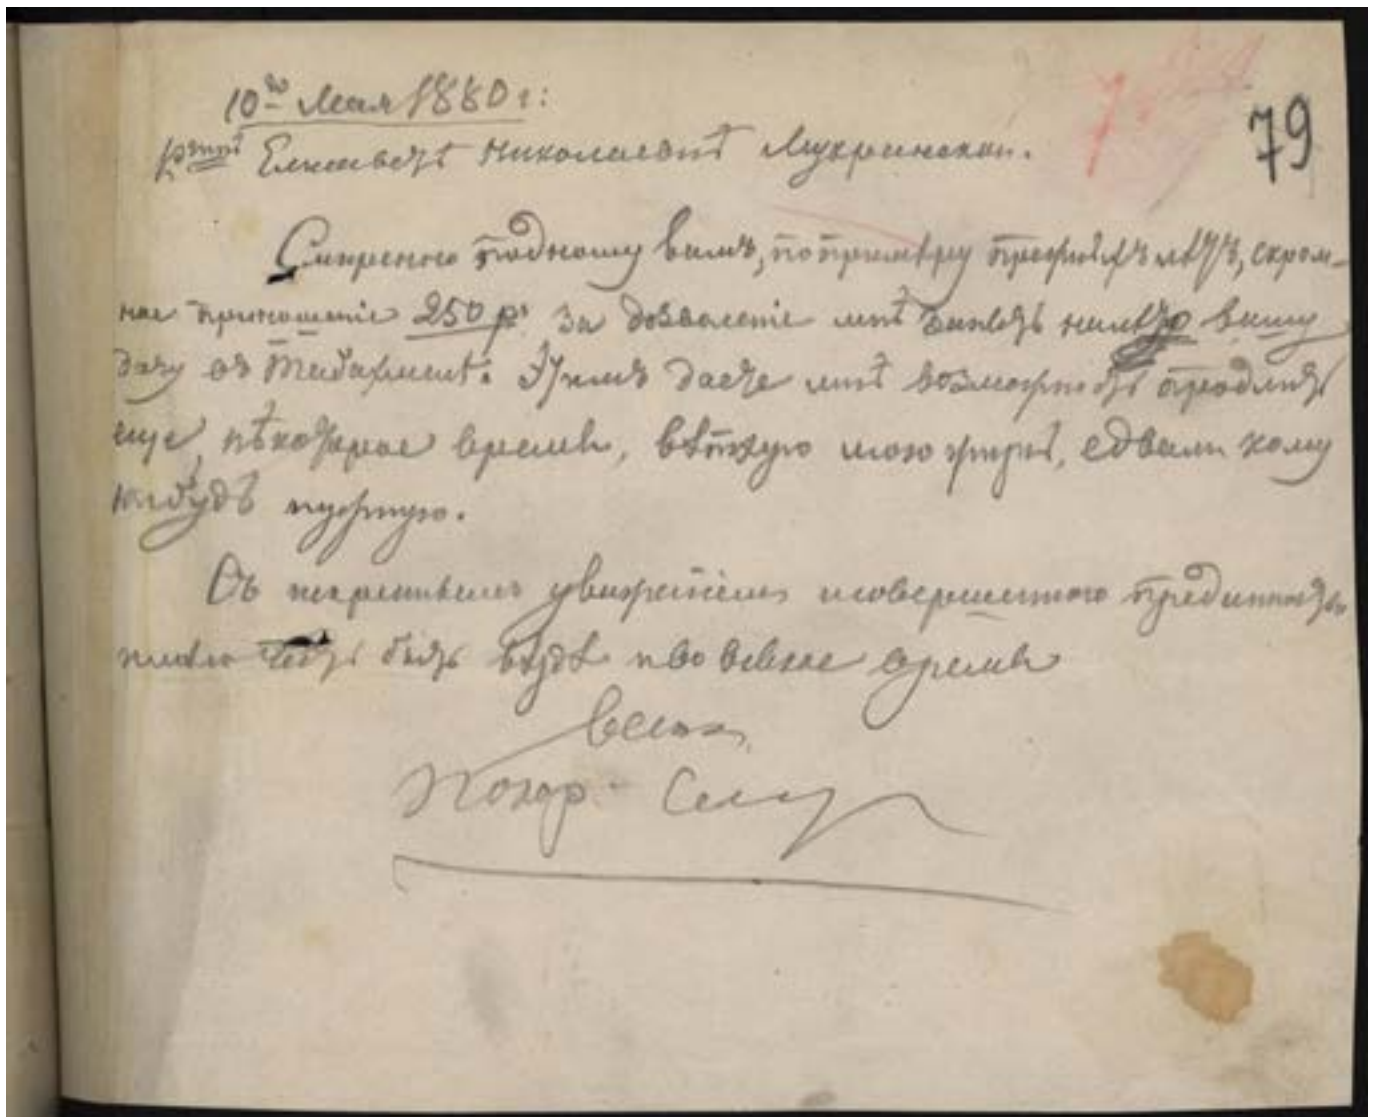 10го Мая 1880 г:
79
Елизаветѣ Николаевнѣ Мухранской.
Съискренно подношу вамъ, по примѣру прежнихъ лѣтъ, скром-
ное приношеніе 250 р. за дозволеніе мнѣ нанять вашу
дачу въ Этимъ даете мнѣ возможность продлить
еще нѣкоторое время, вѣтхую мою жизнь, едвали кому
нибудь нужную.
Съ искреннимъ уваженіемъ и совершенною преданностью
имѣю честь быть вездѣ и во всякое время
вашъ